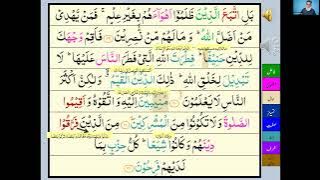 بَلِ اتَّبَعَ الَّذِيْنَ ظَلَمُوْٓا اَهْوَآءَهُمْ بِغَيْرِ عِلْمٍ ۚ فَمَنْ يَّهْدِيْ
مَنْ اَضَلَّ اللّٰهُ ؕ وَمَا لَهُمْ مِّنْ نّٰصِرِيْنَ ۝ فَاَقِمْ وَجْهَكَ
لِلدِّيْنِ حَنِيْفًا ؕ فِطْرَتَ اللّٰهِ الَّتِيْ فَطَرَ النَّاسَ عَلَيْهَا ؕ لَا
تَبْدِيْلَ لِخَلْقِ اللّٰهِ ؕ ذٰلِكَ الدِّيْنُ الْقَيِّمُ ۙ وَلٰكِنَّ اَكْثَرَ
النَّاسِ لَا يَعْلَمُوْنَ ۝ مُنِيْبِيْنَ اِلَيْهِ وَاتَّقُوْهُ وَاَقِيْمُوا
الصَّلٰوةَ وَلَا تَكُوْنُوْا مِنَ الْمُشْرِكِيْنَ ۝ مِنَ الَّذِيْنَ فَرَّقُوْا
دِيْنَهُمْ وَكَانُوْا شِيَعًا ؕ كُلُّ حِزْبٍۭ بِمَا
لَدَيْهِمْ فَرِحُوْنَ ۝